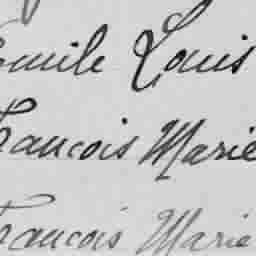 Emile Louis
François Marie
François Marie